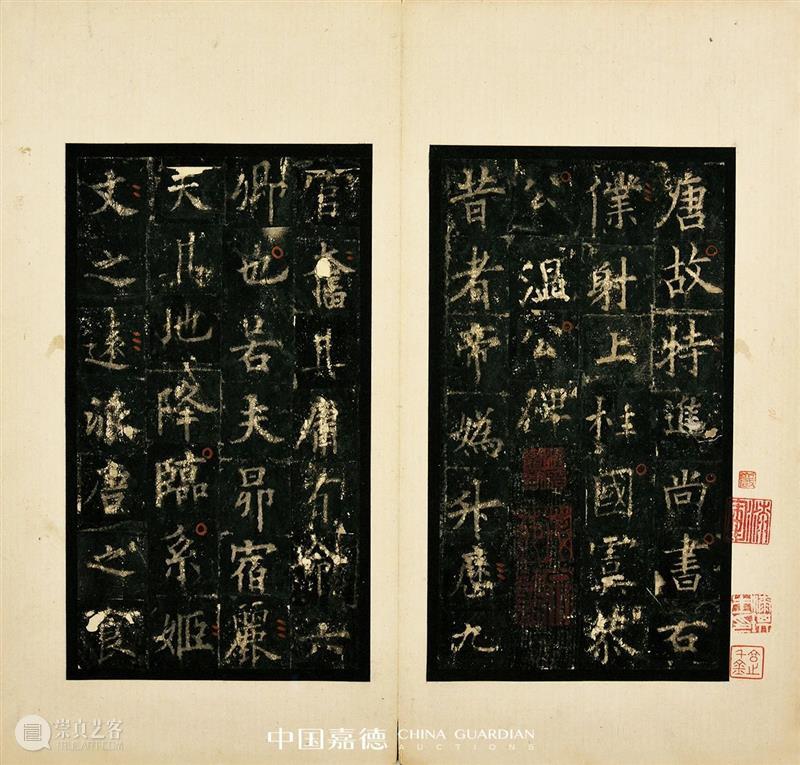 唐故特進尚書右
僕射上柱國虞恭
公溫公碑
昔者帝媯升歷九
官奮其庸有六
卿也若夫昴宿麗
天地降臨系姬
文之遠派唐之食
中国嘉德 CHINA GUARDIAN
AUCTIONS
崇真艺客
TRUEART.COM